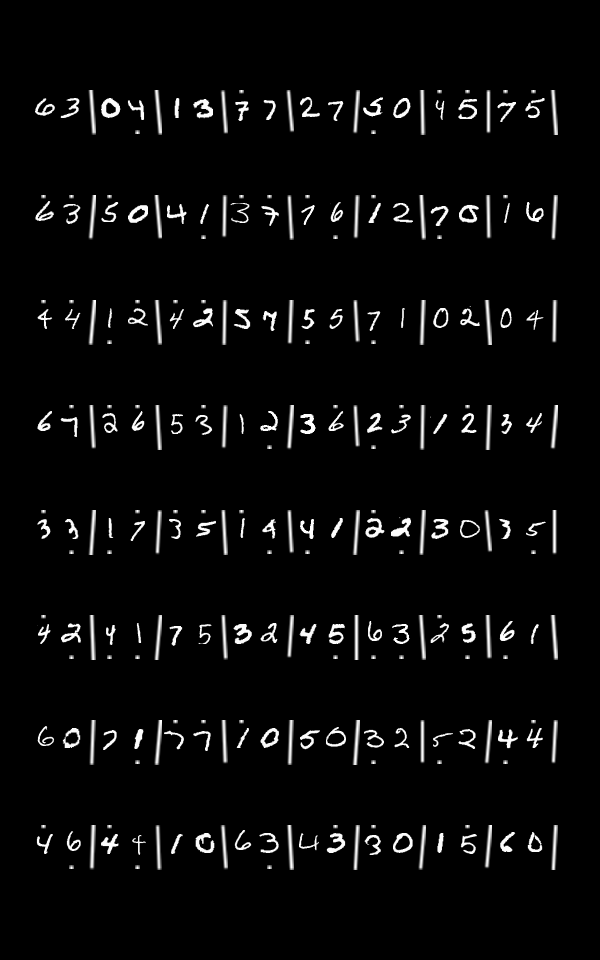 6 3 | 0 4̣ | 1 3 | 7̇ 7 | 2 7 | 5̣ 0 | 4̇ 5̇ | 7 5̇ |
6̇ 3̇ | 5̇ 0 | 4 1̣ | 3 7̇ | 7̇ 6̣ | 1̇ 2 | 7̣ 0 | 1̇ 6 |
4̇ 4̇ | 1̣ 2̇ | 4̇ 2̇ | 5 7 | 5̣ 5 | 7̣ 1 | 0 2 | 0 4 |
6 7̇ | 2̇ 6̇ | 5 3̇ | 1 2̣ | 3 6̇ | 2̣ 3̇ | 1 2̇ | 3 4 |
3̇ 3̣ | 1̣ 7̇ | 3̇ 5̇ | 1̇ 4̣ | 4̣ 1 | 2̇ 2̣ | 3 0 | 3 5̣ |
4̇ 2̣ | 4̣ 1̣ | 7 5 | 3 2 | 4 5̣ | 6̣ 3̣ | 2̇ 5̣ | 6̣ 1 |
6 0̣ | 7 1̣ | 7̇ 7̇ | 1̇ 0 | 5 0 | 3̣ 2 | 5̣ 2 | 4̣ 4̇ |
4̇ 6̣ | 4 4̣ | 1 0 | 6 3̣ | 4 3̇ | 3̇ 0 | 1 5̇ | 6 0 |